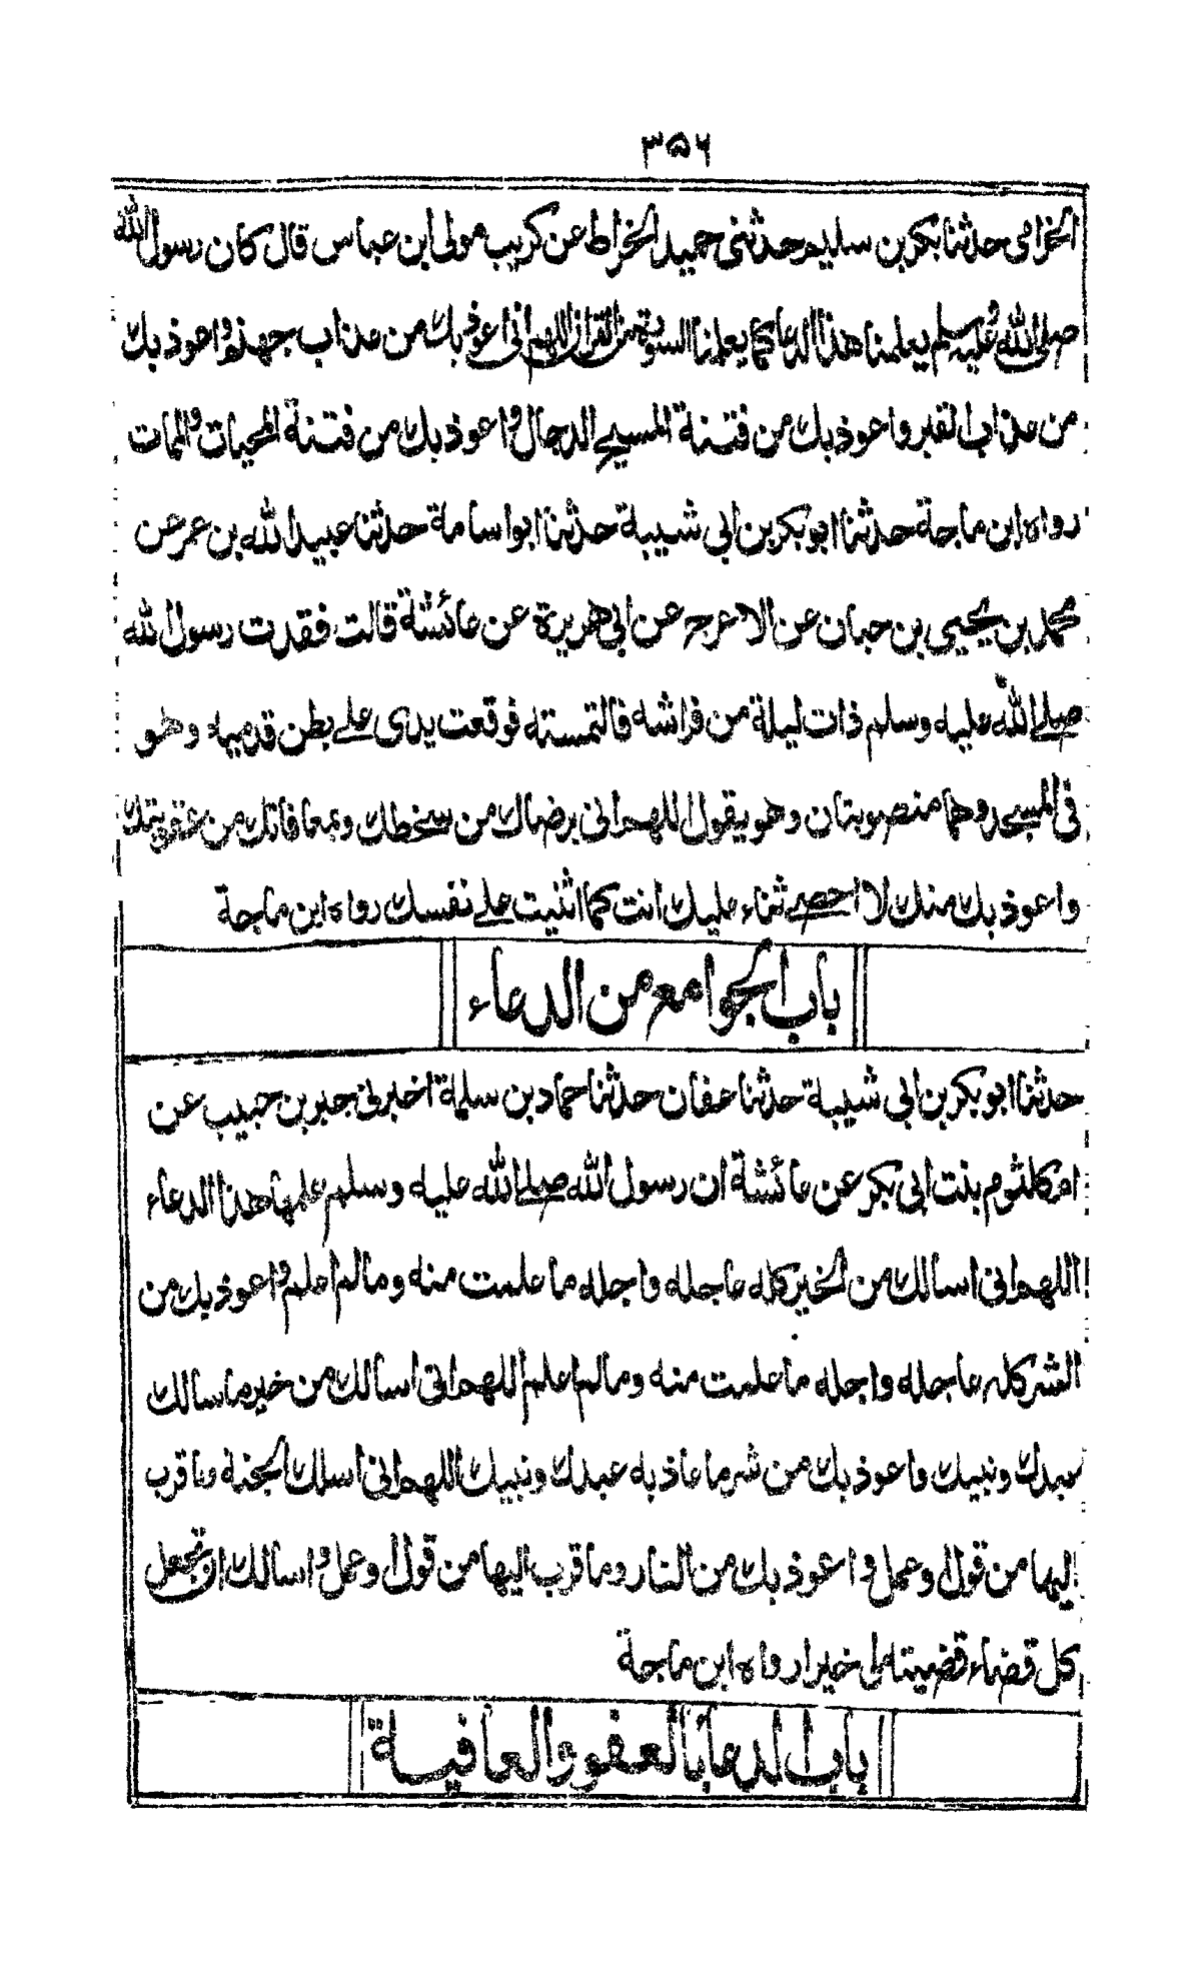 ٣٥٦
الخزامى حدثنا بكر بن سليم حدثنى حميد الخراط عن كريب مولى ابن عباس قال كان رسول الله
صلى الله عليه وسلم يعلمنا هذا الدعا كما يعلمنا السورة من القران اللهم انى اعوذ بك من عذاب جهنم واعوذ بك
من عذاب القبر واعوذ بك من فتنة المسيح الدجال واعوذ بك من فتنة المحيات والممات
رواه ابن ماجة حدثنا ابو بكر بن ابي شيبة حدثنا ابو اسامة حدثنا عبيد الله بن عمر عن
محمد بن يحيى بن حبان عن الاعرج عن ابي هريرة عن عائشة قالت فقدت رسول الله
صلے الله عليه وسلم ذات ليلة من فراشه فالتمسته فوقعت يدى علے بطن قدميه وهو
فى المسجد وهما منصوبتان وهو يقول اللهم انى برضاك من سخطك وبمعافاتك من عقوبتك
واعوذ بك منك لا احصے ثناء عليك انت كما اثنيت علے نفسك رواه ابن ماجة
باب الجوامع من الدعاء
حدثنا ابو بكر بن ابي شيبة حدثنا عفان حدثنا حماد بن سلمة اخبرنى جبر بن حبيب عن
ام كلثوم بنت ابى بكر عن عائشة ان رسول الله صلے الله عليه وسلم علمها هذا الدعاء
اللهم انى اسالك من الخير كله عاجله واجله ما علمت منه ومالم اعلم واعوذ بك من
الشر كله عاجله واجله ما علمت منه ومالم اعلم اللهم انى اسالك من خير ما سالك
عبدك ونبيك واعوذ بك من شر ما عاذ به عبدك ونبيك اللهم انى اسلك الجنة وما قرب
اليها من قول وعمل واعوذ بك من النار وما قرب اليها من قول وعمل واسالك ان تجعل
كل قضاء قضيته لى خيرا رواه ابن ماجة
باب الدعا بالعفو والعافية